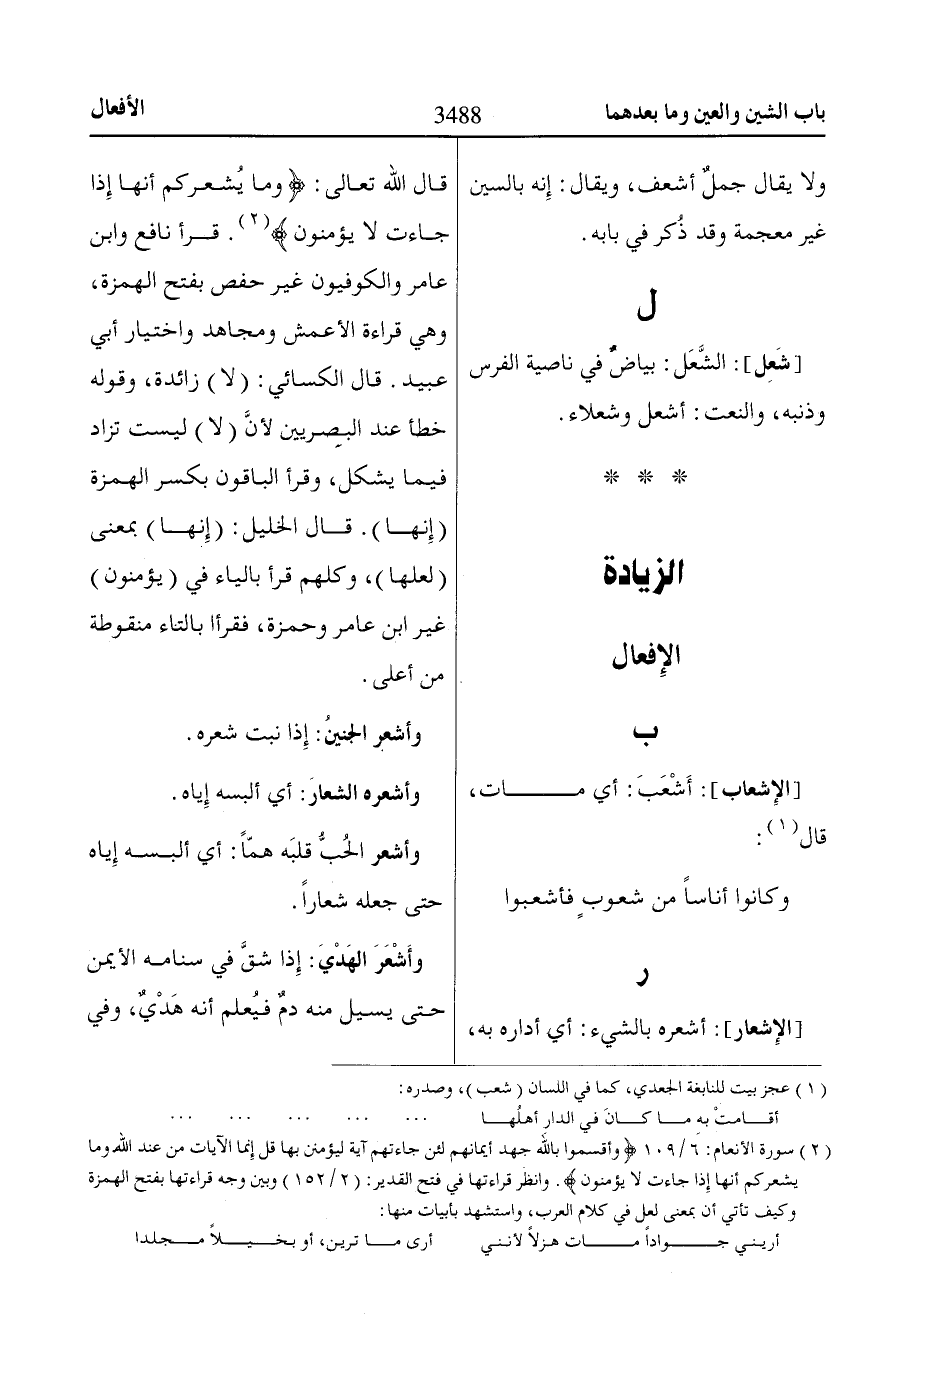 باب الشين والعين وما بعدهما
3488
الأفعال
ولا يقال جملٌ أشعف، ويقال: إنه بالسين
غير معجمة وقد ذُكر في بابه.
ل
[شَعِل]: الشَّعَل: بياضٌ في ناصية الفرس
وذنبه، والنعت: أشعل وشعلاء.
* * *
الزيادة
الإفعال
ب
[الإشعاب]: أَشْعَبَ: أي مـــــات،
قال(١):
وكانوا أناساً من شعوبٍ فأشعبوا
ر
[الإشعار]: أشعره بالشيء: أي أداره به،
قال الله تعالى: ﴿وما يُشعركم أنها إذا
جاءت لا يؤمنون﴾(٢). قرأ نافع وابن
عامر والكوفيون غير حفص بفتح الهمزة،
وهي قراءة الأعمش ومجاهد واختيار أبي
عبيد. قال الكسائي: (لا) زائدة، وقوله
خطأ عند البصريين لأنَّ (لا) ليست تزاد
فيما يشكل، وقرأ الباقون بكسر الهمزة
(إنها). قال الخليل: (إنها) بمعنى
(لعلها)، وكلهم قرأ بالياء في (يؤمنون)
غير ابن عامر وحمزة، فقرأا بالتاء منقوطة
من أعلى.
وأشعر الجنينُ: إذا نبت شعره.
وأشعره الشعارَ: أي ألبسه إياه.
وأشعر الحُبُّ قلبَه همّاً: أي ألبسه إياه
حتى جعله شعاراً.
وأَشْعَرَ الهَدْيَ: إذا شقَّ في سنامه الأيمن
حتى يسيل منه دمٌ فيُعلم أنه هَدْيٌ، وفي
(١) عجز بيت للنابغة الجعدي، كما في اللسان (شعب)، وصدره:
أقـامتْ به مـا كـانَ في الدار أهلُهـا ... ... ... ... ...
(٢) سورة الأنعام: ٦/١٠٩ ﴿وأقسموا بالله جهد أيمانهم لئن جاءتهم آية ليؤمنن بها قل إنما الآيات من عند الله وما
يشعركم أنها إذا جاءت لا يؤمنون﴾. وانظر قراءتها في فتح القدير: (٢/١٥٢) وبين وجه قراءتها بفتح الهمزة
وكيف تأتي أن بمعنى لعل في كلام العرب، واستشهد بأبيات منها:
أريني جـواداً مـات هزلاً لأنني أرى مـا ترين، أو بخـيـلاً مـخلدا